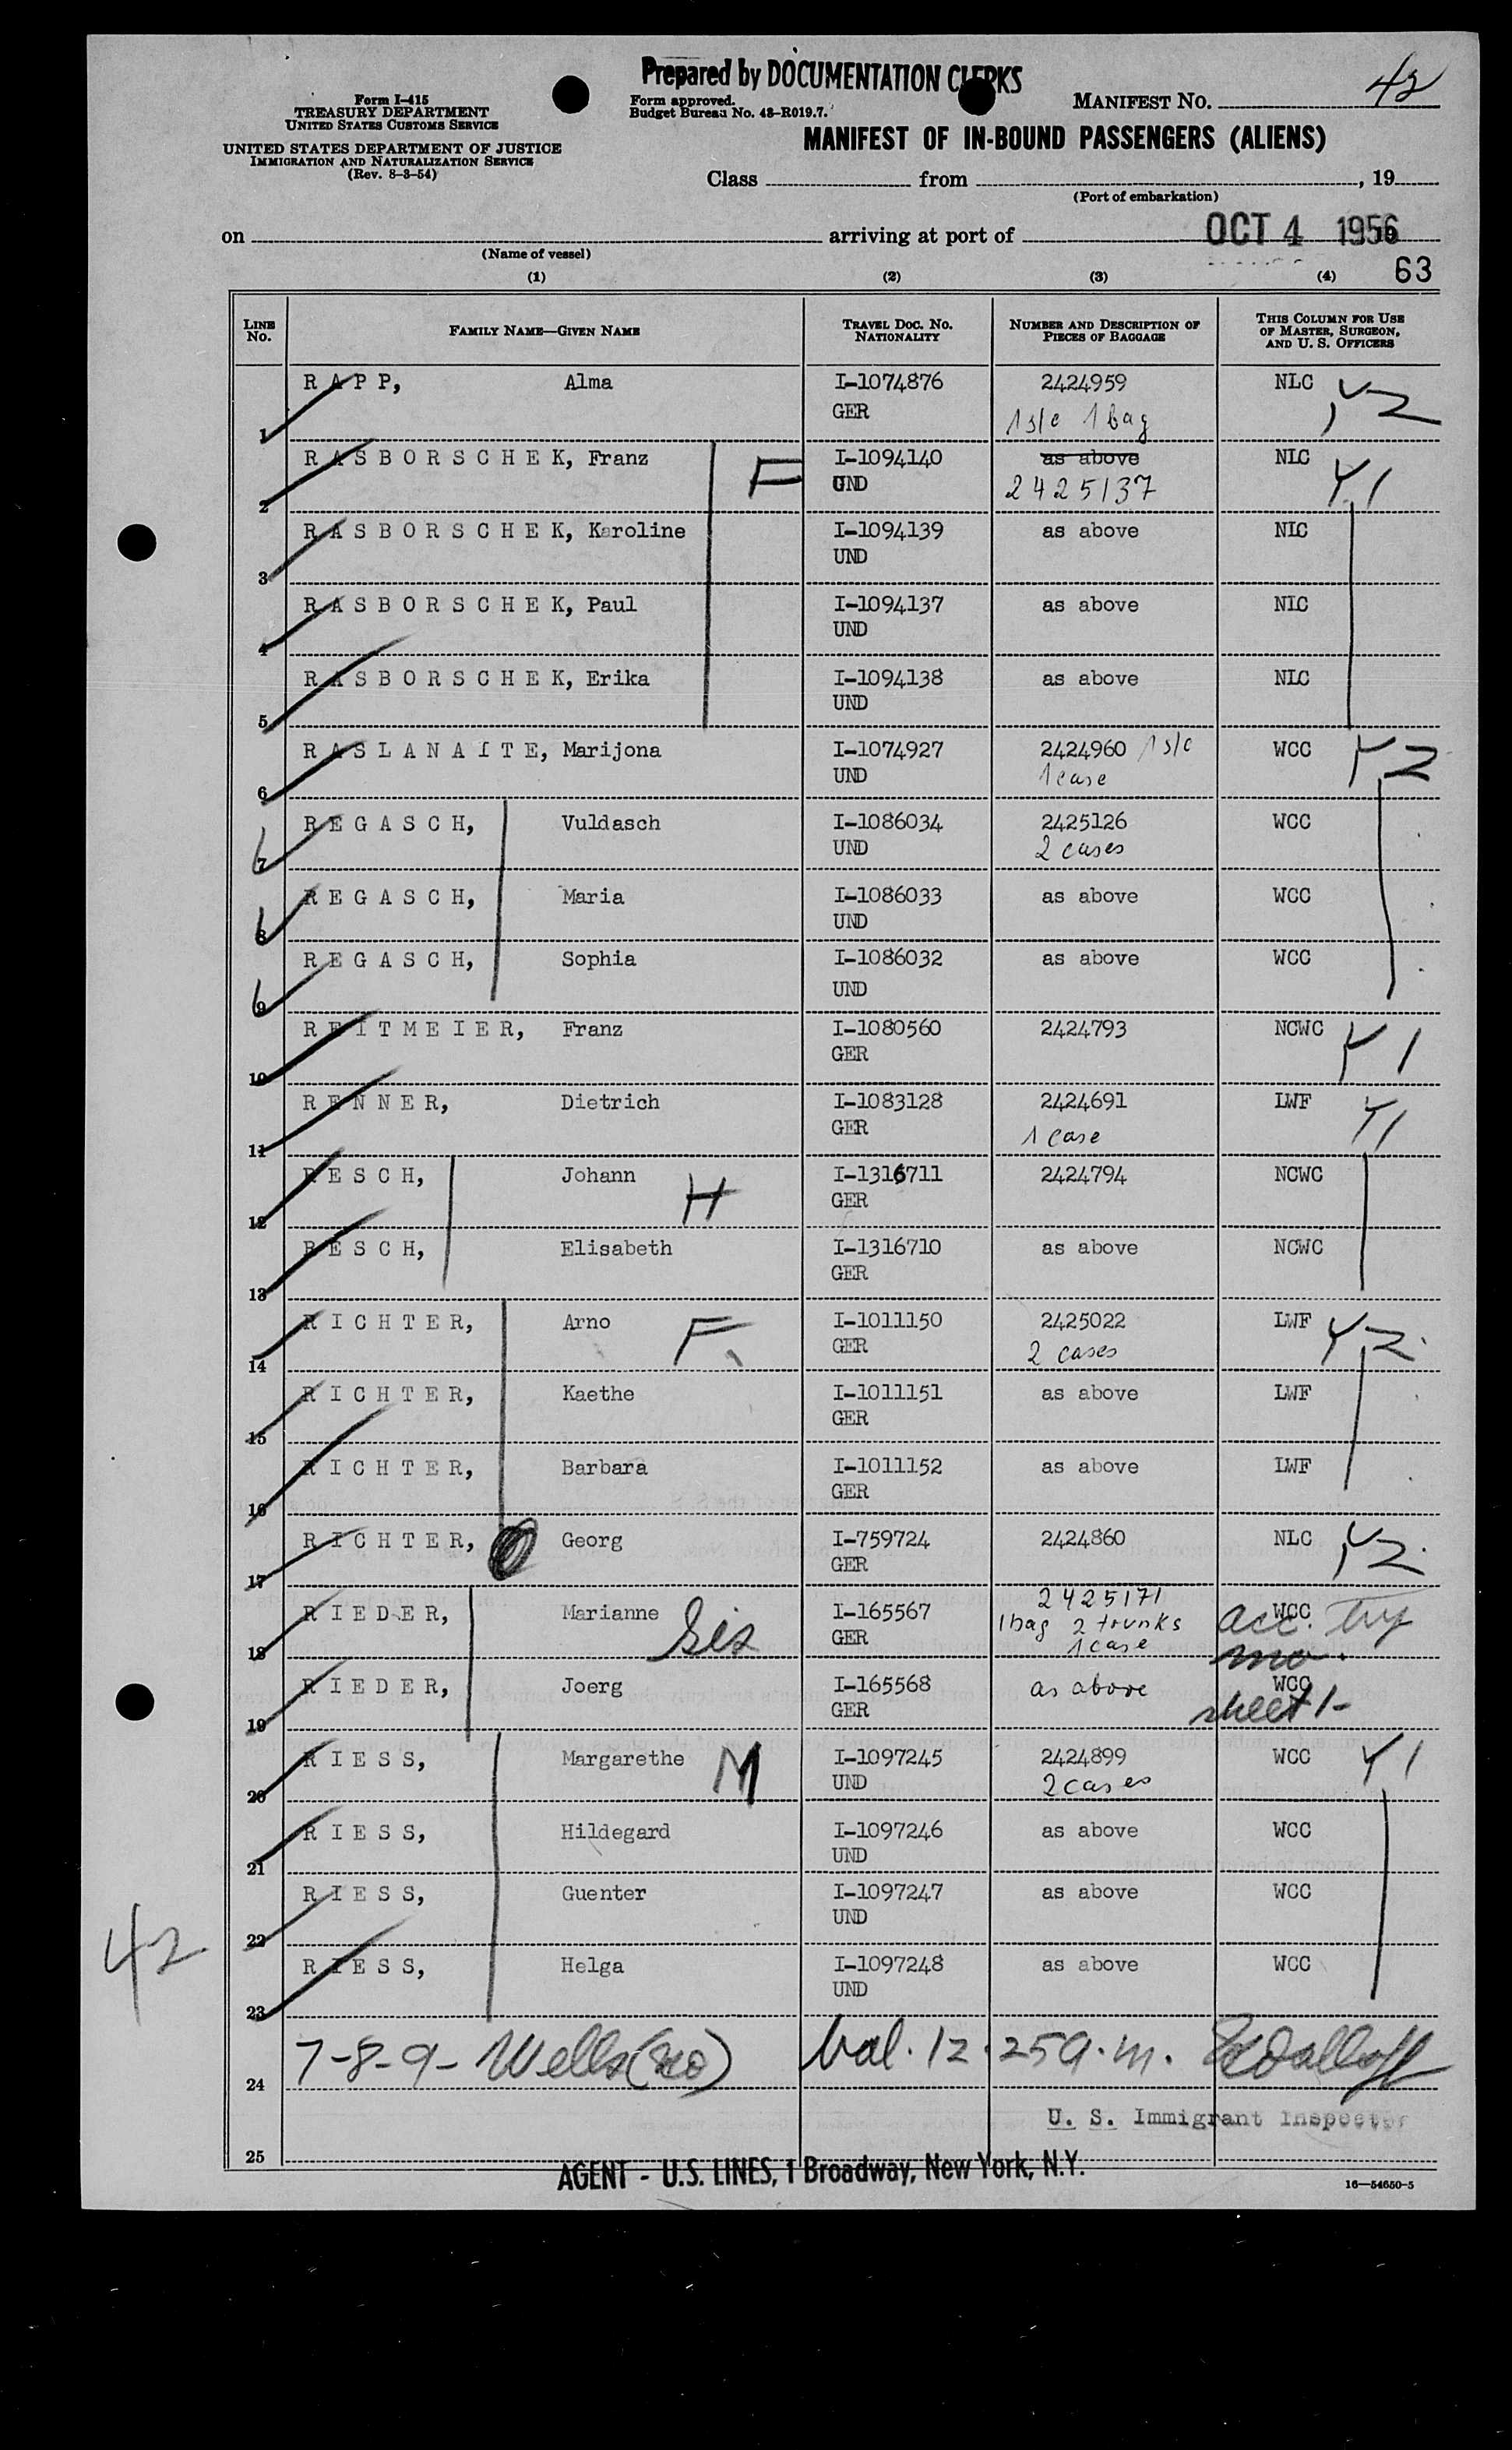 Prepared by DOCUMENTATION CLERKS
Form I-415
TREASURY DEPARTMENT
UNITED STATES CUSTOMS SERVICE
UNITED STATES DEPARTMENT OF JUSTICE
IMMIGRATION AND NATURALIZATION SERVICE
(Rev. 8-3-54)
Form approved.
Budget Bureau No. 43-R019.7.
MANIFEST NO. 42
MANIFEST OF IN-BOUND PASSENGERS (ALIENS)
Class from , 19
(Port of embarkation)
on arriving at port of OCT 4 1956
(Name of vessel)
63
(1) (2) (3) (4)
LINE No. FAMILY NAME—GIVEN NAME TRAVEL DOC. NO. NATIONALITY NUMBER AND DESCRIPTION OF PIECES OF BAGGAGE THIS COLUMN FOR USE OF MASTER, SURGEON, AND U. S. OFFICERS
1 RAPP, Alma I-1074876 GER 2424959 1 s/c 1 bag NLC Y2
2 RASBORSCHEK, Franz F I-1094140 UND as above 2425137 NLC Y1
3 RASBORSCHEK, Karoline I-1094139 UND as above NLC
4 RASBORSCHEK, Paul I-1094137 UND as above NLC
5 RASBORSCHEK, Erika I-1094138 UND as above NLC
6 RASLANAITE, Marijona I-1074927 UND 2424960 1 s/c 1 case WCC Y2
7 REGASCH, Vuldasch I-1086034 UND 2425126 2 cases WCC
8 REGASCH, Maria I-1086033 UND as above WCC
9 REGASCH, Sophia I-1086032 UND as above WCC
10 REITMEIER, Franz I-1080560 GER 2424793 NCWC Y1
11 RENNER, Dietrich I-1083128 GER 2424691 1 case LWF Y1
12 RESCH, Johann H I-1316711 GER 2424794 NCWC
13 RESCH, Elisabeth I-1316710 GER as above NCWC
14 RICHTER, Arno F I-1011150 GER 2425022 2 cases LWF Y2
15 RICHTER, Kaethe I-1011151 GER as above LWF
16 RICHTER, Barbara I-1011152 GER as above LWF
17 RICHTER, Georg I-759724 GER 2424860 NLC Y2
18 RIEDER, Marianne Sis I-165567 GER 2425171 1 bag 2 trunks 1 case WCC acc. by mo.
19 RIEDER, Joerg I-165568 GER as above WCC sheet 1-
20 RIESS, Margarethe M I-1097245 UND 2424899 2 cases WCC Y1
21 RIESS, Hildegard I-1097246 UND as above WCC
22 RIESS, Guenter I-1097247 UND as above WCC
23 RIESS, Helga I-1097248 UND as above WCC
42
24 7-8-9- Wells bal. 12.25 a.m.
U. S. Immigrant Inspector
25
AGENT - U.S. LINES, 1 Broadway, New York, N.Y.
16—54650-5